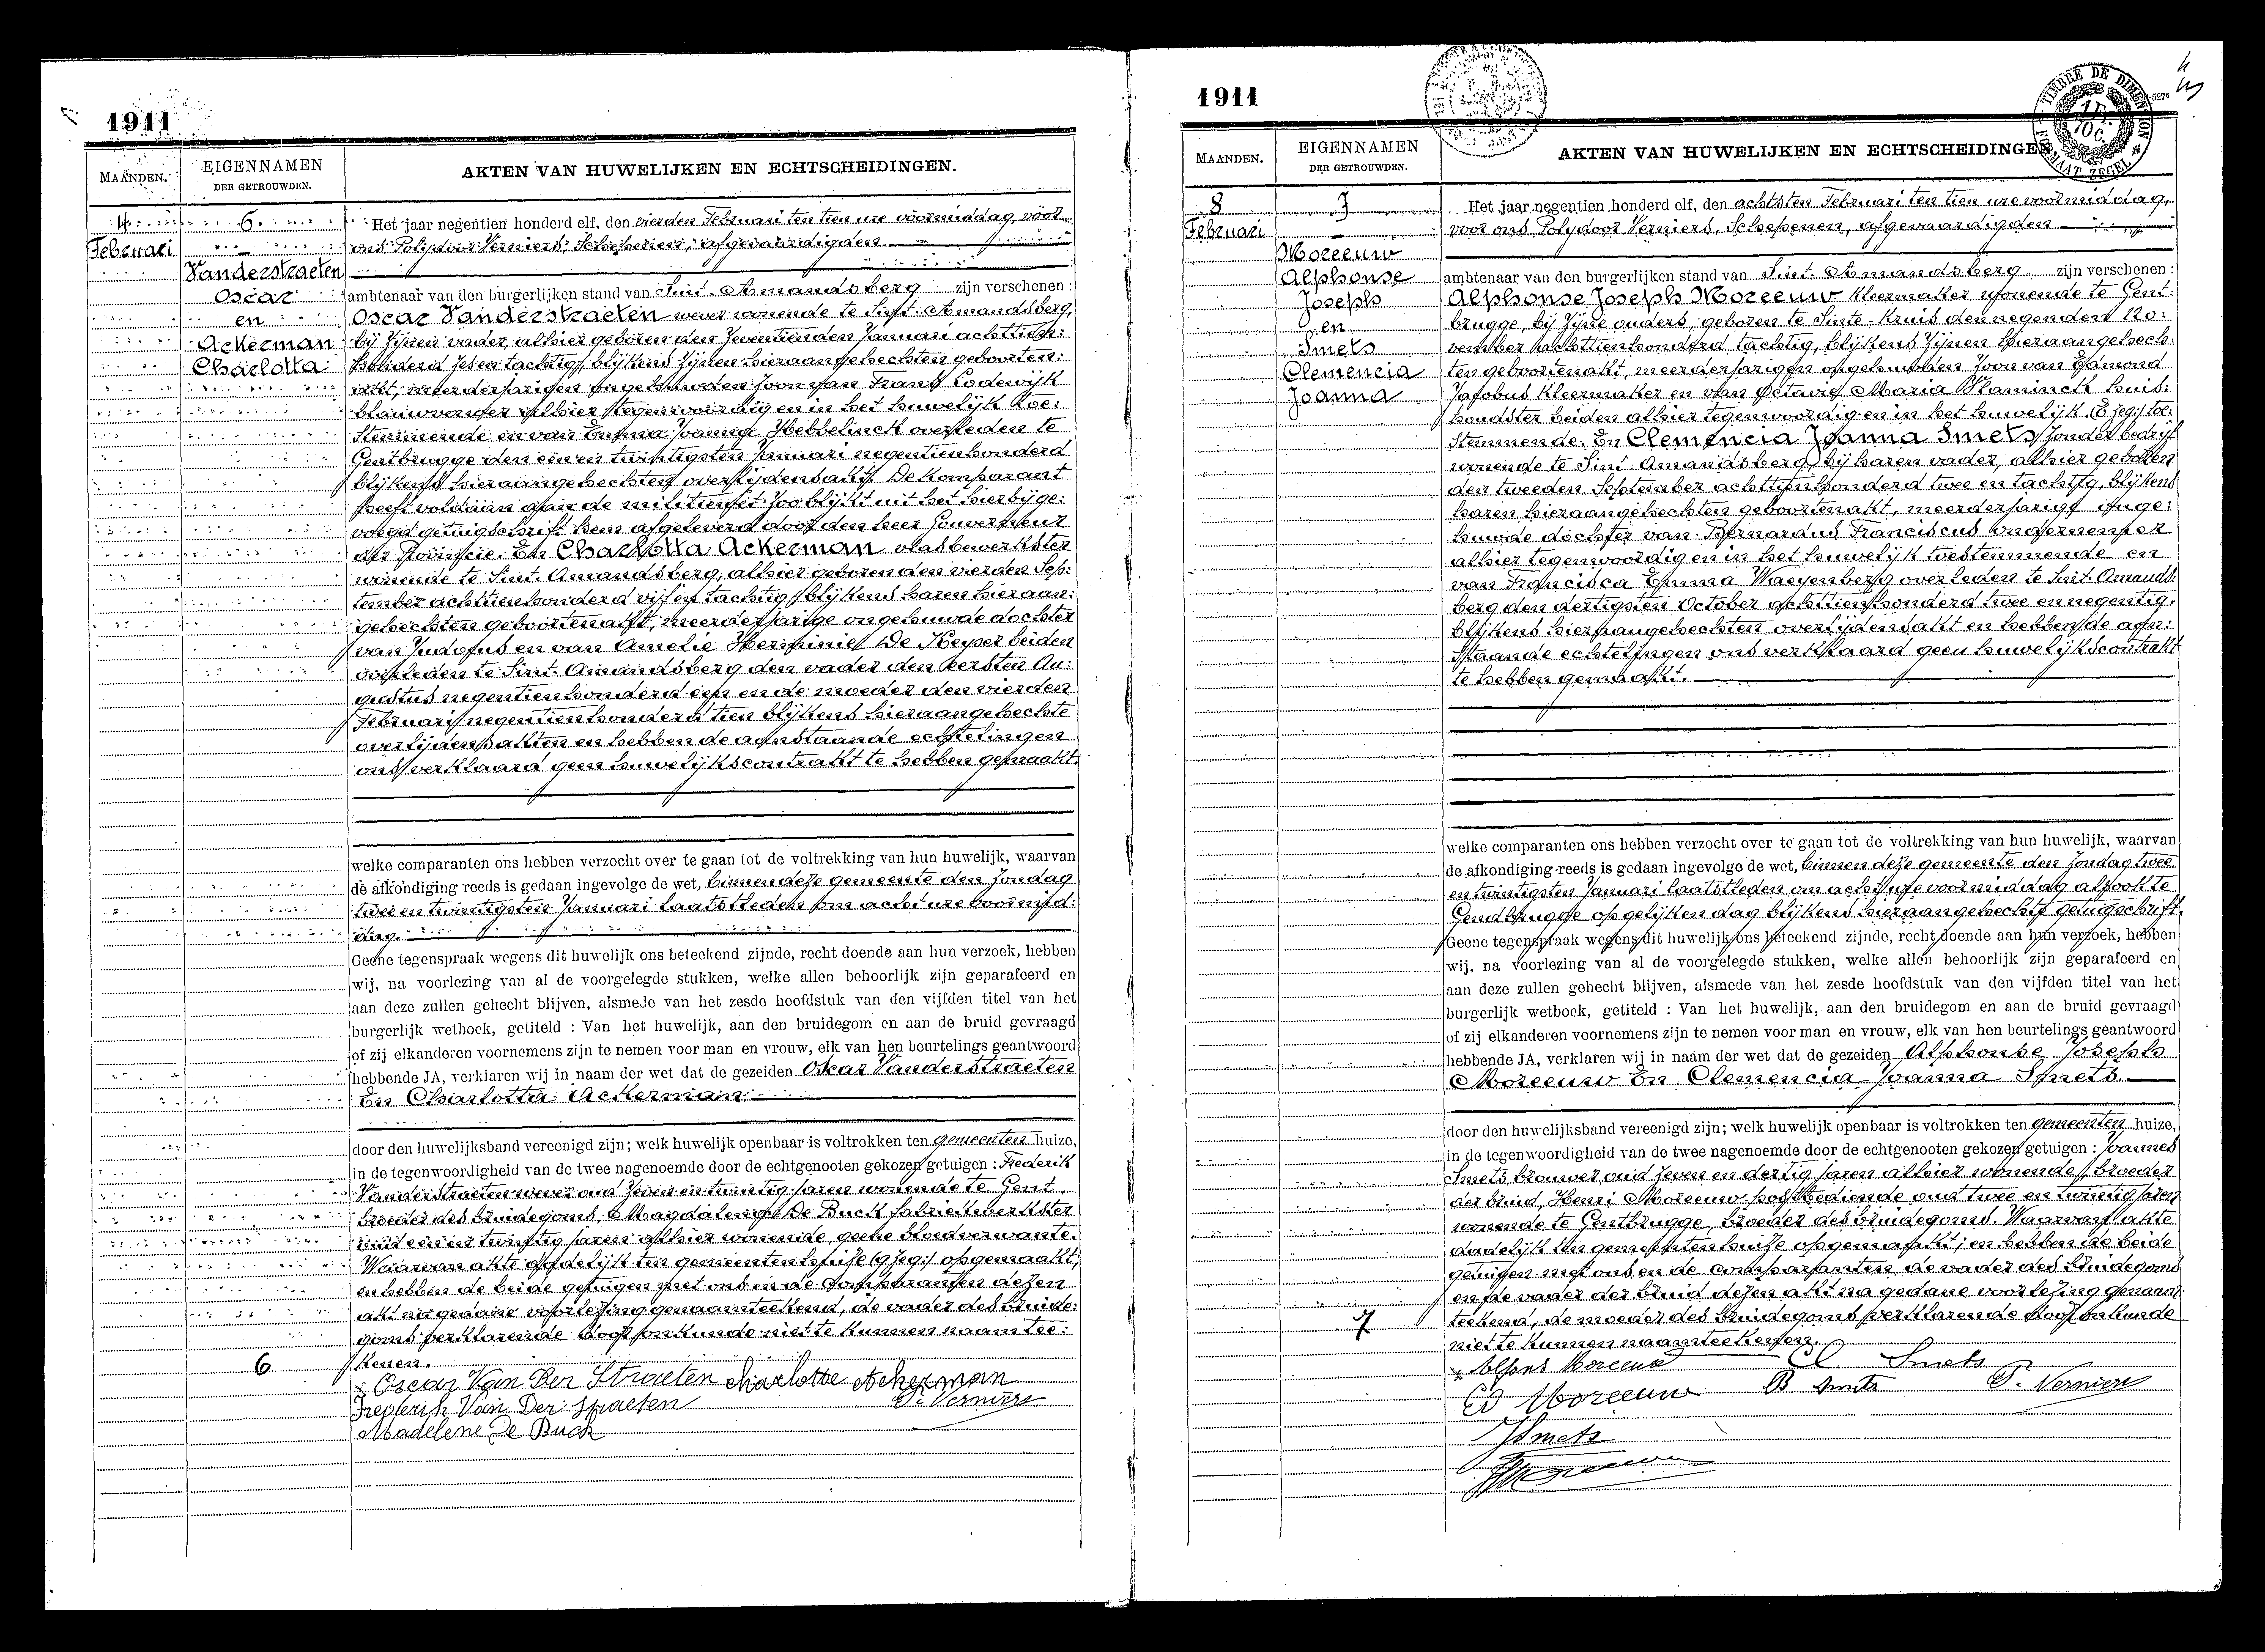 1911
MAANDEN.
EIGENNAMEN
DER GETROUWDEN.
AKTEN VAN HUWELIJKEN EN ECHTSCHEIDINGEN.
4
Februari
6
Vanderstraeten
Oscar
en
Ackerman
Charlotta
Het jaar negentien honderd elf, den vierden Februari ten tien ure voormiddag, voor
ons Polydoor Verniers, Schepenen, afgevaardigden
ambtenaar van den burgerlijken stand van Sint-Amandsberg zijn verschenen :
Oscar Vanderstraeten wever wonende te Sint-Amandsberg,
bij zijnen vader, alhier geboren den zeventienden Januari achttien:
honderd zes en tachtig, blijkens zijnen hieraangehechten geboorten:
akt, meerderjarigen ongehuwden zoon van Frans Lodewijk
blauwverver alhier tegenwoordig en in het huwelijk toe:
stemmende en van Emma Joanna Hebbelinck overleden te
Gentbrugge den een en twintigsten Januari negentienhonderd
blijkens hieraangehechten overlijdensakt. De komparant
heeft voldaan aan de militiewet zoo blijkt uit het hierbij ge:
voegd getuigschrift hem afgeleverd door den heer Gouverneur
der Provincie. En Charlotta Ackerman vlasbewerkster
wonende te Sint-Amandsberg, alhier geboren den vierden Sep:
tember achttienhonderd vijf en tachtig, blijkens haren hieraan:
gehechten geboortenakt, meerderjarige ongehuwde dochter
van Judocus en van Amelie Herminie De Keyser beiden
overleden te Sint-Amandsberg den vader den eersten Au:
gustus negentienhonderd een en de moeder den vierden
Februari negentienhonderd tien blijkens hieraangehechte
overlijdensakten en hebben de aanstaande echtelingen
ons verklaard geen huwelijkscontrakt te hebben gemaakt.
welke comparanten ons hebben verzocht over te gaan tot de voltrekking van hun huwelijk, waarvan
de afkondiging reeds is gedaan ingevolge de wet, binnen deze gemeente den Zondag
twee en twintigsten Januari laatstleden om acht ure voormid:
dag.
Geene tegenspraak wegens dit huwelijk ons beteekend zijnde, recht doende aan hun verzoek, hebben
wij, na voorlezing van al de voorgelegde stukken, welke allen behoorlijk zijn geparafeerd en
aan deze zullen gehecht blijven, alsmede van het zesde hoofdstuk van den vijfden titel van het
burgerlijk wetboek, getiteld : Van het huwelijk, aan den bruidegom en aan de bruid gevraagd
of zij elkanderen voornemens zijn te nemen voor man en vrouw, elk van hen beurtelings geantwoord
hebbende JA, verklaren wij in naam der wet dat de gezeiden Oscar Vanderstraeten
En Charlotta Ackerman
door den huwelijksband vereenigd zijn; welk huwelijk openbaar is voltrokken ten gemeenten huize,
in de tegenwoordigheid van de twee nagenoemde door de echtgenooten gekozen getuigen : Frederik
Vanderstraeten wever oud zeven en twintig jaren wonende te Gent,
broeder des bruidegoms, Magdalena De Buck fabriekwerkster
oud een en twintig jaren alhier wonende, geene bloedverwante.
Waarvan akte dadelijk ten gemeentenhuize (g zeg:) opgemaakt,
en hebben de beide getuigen met ons en de comparanten dezen
akt na gedane voorlezing genaamteekend, de vader des bruide:
goms verklarende door onkunde niet te kunnen naamtee:
kenen.
6
Oscar Van Der Straeten Charlotte Ackerman
Frederik Van Der Straeten P. Verniers
Madelene De Buck
1911
TIMBRE DE DIMENSION
FORMAAT ZEGEL
MAANDEN.
EIGENNAMEN
DER GETROUWDEN.
AKTEN VAN HUWELIJKEN EN ECHTSCHEIDINGEN
8
Februari
7
Moreeuw
Alphonse
Joseph
en
Smets
Clemencia
Joanna
Het jaar negentien honderd elf, den achtsten Februari ten tien ure voormiddag,
voor ons Polydoor Verniers, Schepenen, afgevaardigden
ambtenaar van den burgerlijken stand van Sint-Amandsberg zijn verschenen :
Alphonse Joseph Moreeuw kleermaker wonende te Gent:
brugge, bij zijne ouders, geboren te Sinte-Kruis den negenden No:
vember achttienhonderd tachtig, blijkens zijnen hieraangehech:
ten geboortenakt, meerderjarigen ongehuwden zoon van Edmond
Jacobus kleermaker en van Octavie Maria Vlaminck huis:
houdster beiden alhier tegenwoordig en in het huwelijk (E zeg:) toe:
stemmende. En Clemencia Joanna Smets zonder bedrijf
wonende te Sint-Amandsberg, bij haren vader, alhier geboren
den tweeden September achttienhonderd twee en tachtig, blijkens
haren hieraangehechten geboortenakt, meerderjarige onge:
huwde dochter van Bernardus Franciscus ondernemer
alhier tegenwoordig en in het huwelijk toestemmende en
van Francisca Emma Waeyenberg overleden te Sint-Amands:
berg den dertigsten October achttienhonderd twee en negentig,
blijkens hieraangehechten overlijdensakt en hebben de aan:
staande echtelingen ons verklaard geen huwelijkscontrakt
te hebben gemaakt.
welke comparanten ons hebben verzocht over te gaan tot de voltrekking van hun huwelijk, waarvan
de afkondiging reeds is gedaan ingevolge de wet, binnen deze gemeente den Zondag twee
en twintigsten Januari laatstleden om acht ure voormiddag alsook te
Gendbrugge op gelijken dag blijkens hieraangehecht getuigschrift.
Geene tegenspraak wegens dit huwelijk ons beteekend zijnde, recht doende aan hun verzoek, hebben
wij, na voorlezing van al de voorgelegde stukken, welke allen behoorlijk zijn geparafeerd en
aan deze zullen gehecht blijven, alsmede van het zesde hoofdstuk van den vijfden titel van het
burgerlijk wetboek, getiteld : Van het huwelijk, aan den bruidegom en aan de bruid gevraagd
of zij elkanderen voornemens zijn te nemen voor man en vrouw, elk van hen beurtelings geantwoord
hebbende JA, verklaren wij in naam der wet dat de gezeiden Alphonse Joseph
Moreeuw En Clemencia Joanna Smets
door den huwelijksband vereenigd zijn; welk huwelijk openbaar is voltrokken ten gemeenten huize,
in de tegenwoordigheid van de twee nagenoemde door de echtgenooten gekozen getuigen : Joannes
Smets brouwer oud zeven en dertig jaren alhier wonende, broeder
der bruid, Henri Moreeuw postbediende oud twee en twintig jaren
wonende te Gentbrugge, broeder des bruidegoms. Waarvan akte
dadelijk ten gemeentenhuize opgemaakt, en hebben de beide
getuigen met ons en de comparanten de vader des bruidegoms
en de vader der bruid dezen akt na gedane voorlezing genaam:
teekend, de moeder des bruidegoms verklarende door onkunde
niet te kunnen naamteekenen.
7
Alfons Moreeuw Cl Smets
Ed Moreeuw B Smets P. Verniers
J Smets